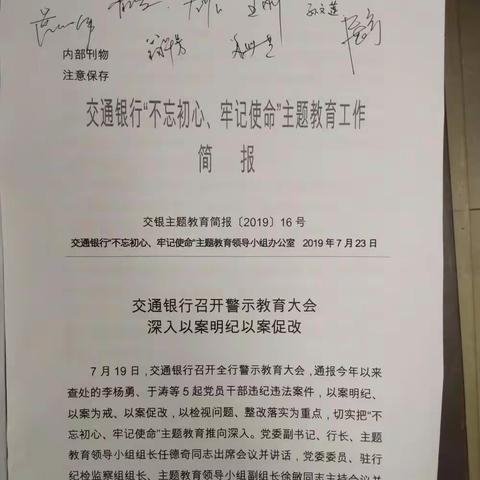 孙文莲
内部刊物
注意保存
交通银行“不忘初心、牢记使命”主题教育工作
简 报
交银主题教育简报〔2019〕16 号
交通银行“不忘初心、牢记使命”主题教育领导小组办公室 2019 年 7 月 23 日
交通银行召开警示教育大会
深入以案明纪以案促改
7 月 19 日，交通银行召开全行警示教育大会，通报今年以来
查处的李杨勇、于涛等 5 起党员干部违纪违法案件，以案明纪、
以案为戒、以案促改，以检视问题、整改落实为重点，切实把“不
忘初心、牢记使命”主题教育推向深入。党委副书记、行长、主题
教育领导小组组长任德奇同志出席会议并讲话，党委委员、驻行
纪检监察组组长、主题教育领导小组副组长徐敏同志主持会议并